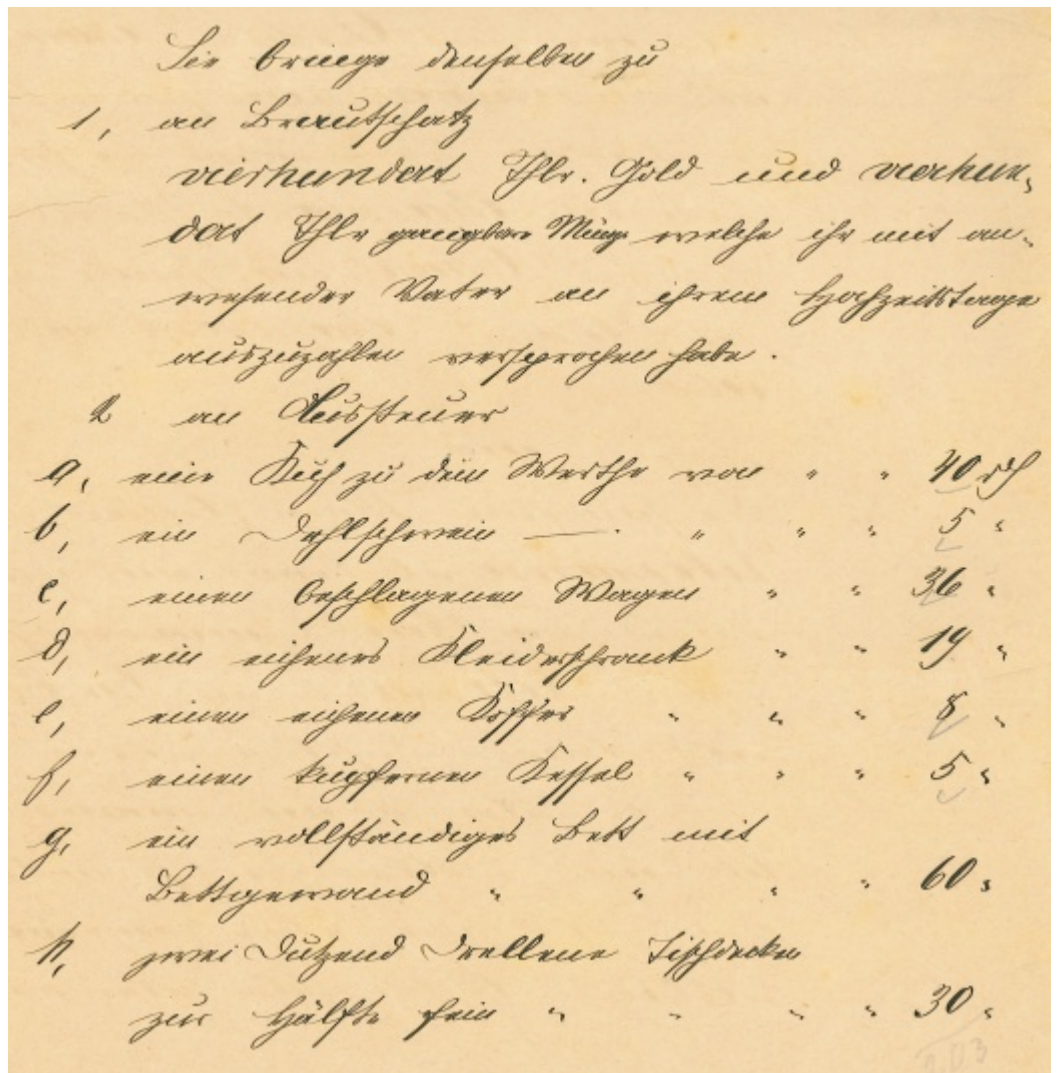 Sie bringe denselben zu
1, an Brautschatz
vierhundert Thlr. Gold und vierhun-
dert Thlr gangbare Münze welche ihr mit an-
wesender Vater an ihrem Hochzeitstage
auszuzahlen versprochen habe.
2 an Aussteuer
a, eine Kuh zu dem Werthe von " " 40 rth
b, ein Dehlschwein — . " " " 5 "
c, einen beschlagenen Wagen " " 36 "
d, ein eichenes Kleiderschrank " " 19 "
e, einen eichenen Koffer " " " 8 "
f, einen kupfernen Kessel " " " 5 "
g, ein vollständiges Bett mit
Bettgewand " " " " 60 "
h, zwei Dutzend Drellene Tischdecken
zur Hälfte fein " " " " 30 "
203